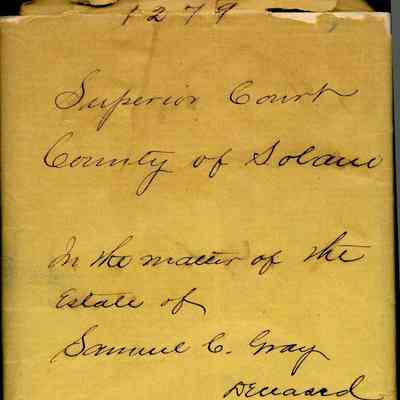 1279
Superior Court
County of Solano
In the matter of the
Estate of
Samuel C. Gray
Deceased